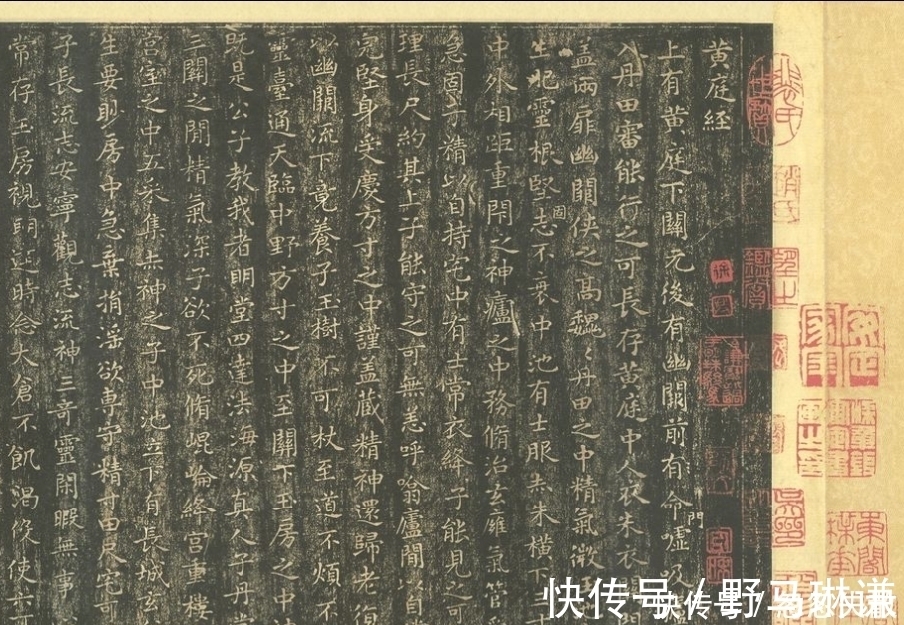 黄庭經
上有黄庭下關元後有幽關前有命門噓吸
入丹田審能行之可長存黄庭中人衣朱衣關
盖兩扉幽關俠之高巍〻丹田之中精氣微玉
生肥靈根堅固志不衰中池有士服赤朱横下三
中外相距重閉之神廬之中務脩治玄廱氣管
急固子精以自持宅中有士常衣絳子能見之可
理長尺約其上子能守之可無恙呼噏廬間以自
完堅身受慶方寸之中謹盖藏精神還歸老復
以幽關流下竟養子玉樹不可杖至道不煩不
靈臺通天臨中野方寸之中至關下玉房之中
既是公子教我者明堂四達法海源真人子丹
三關之間精氣深子欲不死脩崐崘絳宫重樓
宫室之中五采集赤神之子中池立下有長城玄
生要眇房中急棄捐淫欲專守精寸田尺宅可
子長流志安寧觀志流神三奇靈閑暇無事
常存玉房視明達時念大倉不飢渴役使六
快传号/野马琳谦
快传号/